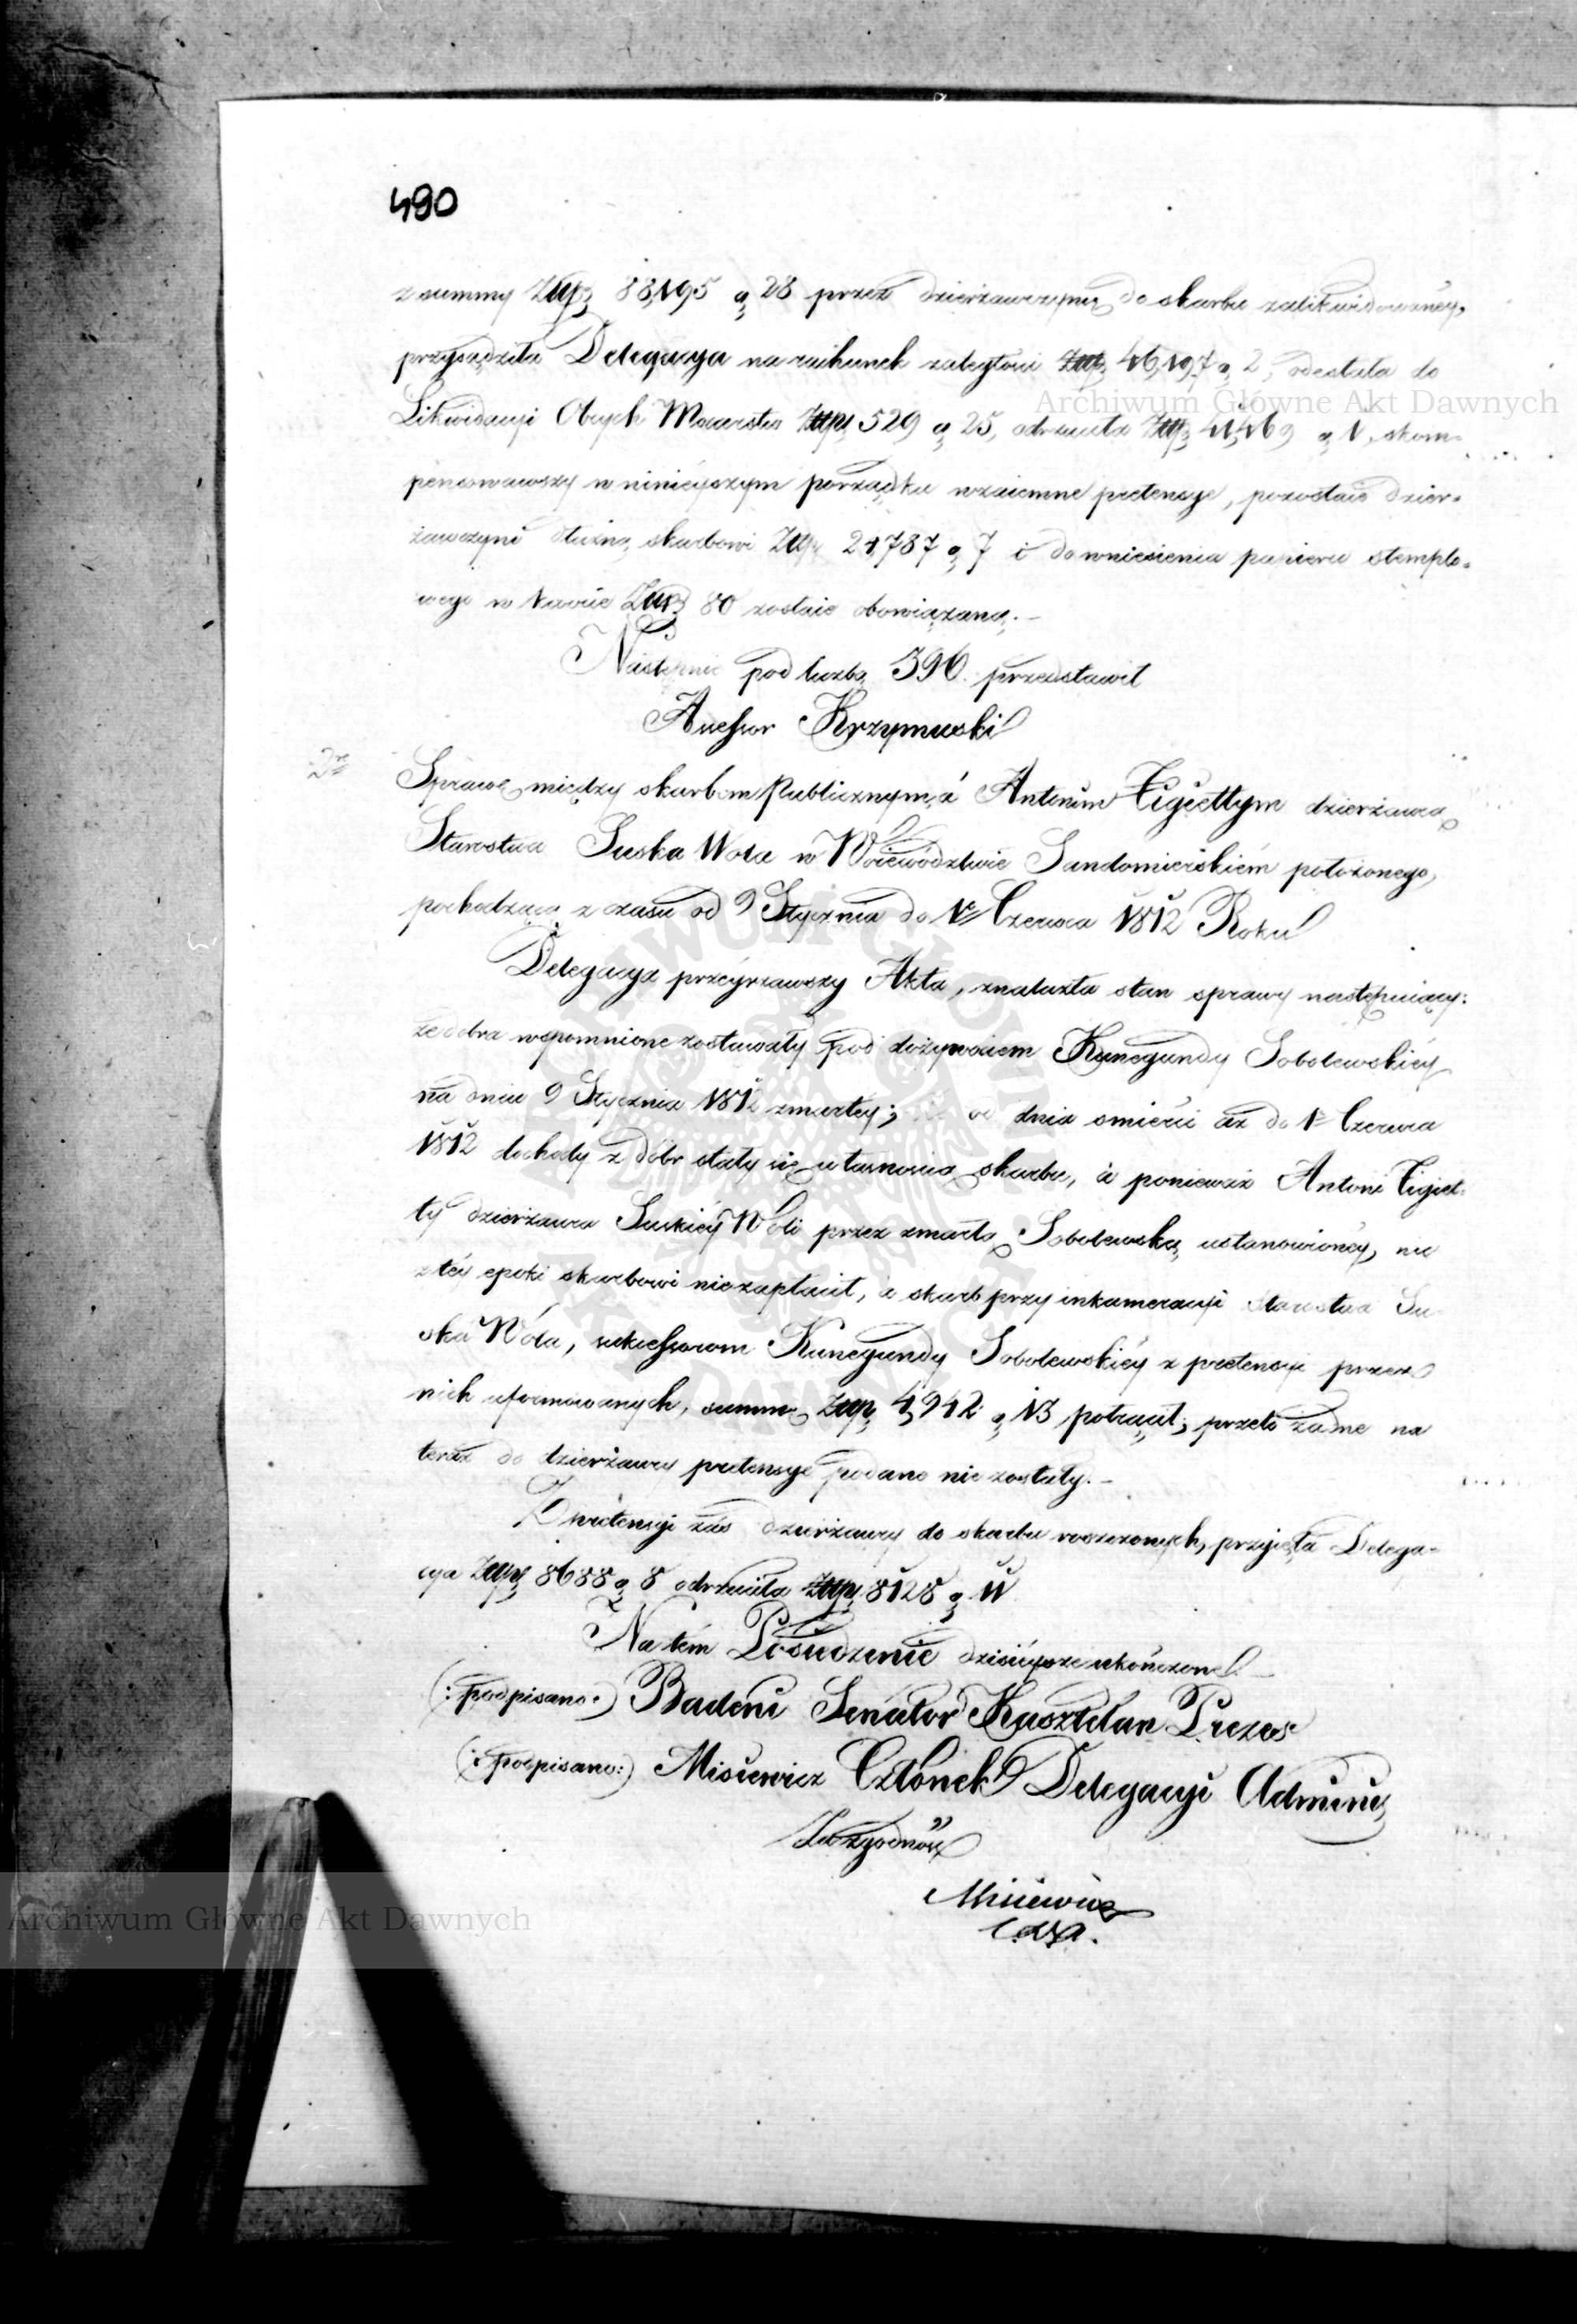 490
z summy Złp. 88,195 g. 28 przez dzierżawczynię do skarbu zalikwidowanéy,
przysądziła Delegacya na rachunek zaległości Złp. 46,197 g. 2, odesłała do
Likwidacyi Obcych Mocarstw Złp. 529 g. 25, odrzuciła Złp. 41,469 g. 1, skom-
pensowawszy w ninieyszym porządku wzaiemne pretensye, pozostaie dzier-
żawczyni dłużną skarbowi Złp. 24,787 g. 7 i do wniesienia papieru stemplo-
wego w kwocie Złp. 80 zostaie obowiązaną.-
Następnie pod liczbą 396 przedstawił
Assessor Krzymuski
2re
Sprawę między skarbem Publicznym, á Antonim Tigiettym dzierżawcą
Starostwa Suska Wola w Woiewództwie Sandomierskiém położonego,
pochodzącą z czasu od 9 Stycznia do 1o Czerwca 1812 Roku
Delegacya przeyrzawszy Akta, znalazła stan sprawy następuiący:
że dobra wspomnione zostawały pod dożywociem Kunegundy Sobolewskiéy
na dniu 9 Stycznia 1812 zmarłey; że od dnia śmierci aż do 1o Czerwca
1812 dochody z dóbr stały się własnością skarbu, á ponieważ Antoni Tigiet-
ty dzierżawca Suskiéy Woli przez zmarłą Sobolewską ustanowionéy, nic
z téy epoki skarbowi niezapłacił, a skarb przy inkameracyi Starostwa Su-
ska Wola, sukcessorom Kunegundy Sobolewskiéy z pretensyi przez
nich uformowanych, summę Złp. 4,942 g. 13 potrącił; przeto żadne na
teraz do dzierżawcy pretensye podane nie zostały.-
Z pretensyi zaś dzierżawcy do skarbu roszczonych, przyięła Delega-
cya Złp. 8688 g. 8 odrzuciła Złp. 8128 g. 11
Na tém Posiedzenie dzisieysze ukończone.-
(:podpisano:) Badeni Senator Kasztelan Prezes
(:podpisano:) Misiewicz Członek Delegacyi Adminis
Za zgodność
Misiewicz
Archiwum Główne Akt Dawnych
Archiwum Główne Akt Dawnych